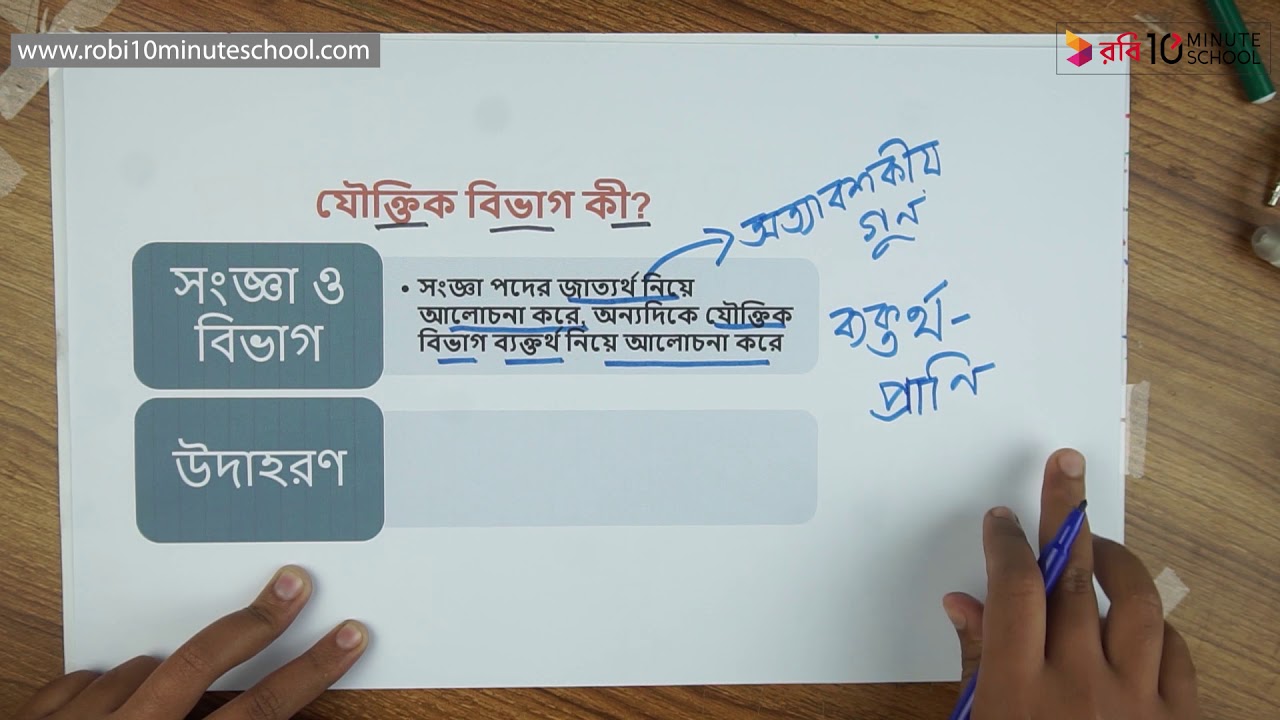 www.robi10minuteschool.com
রবি 10 MINUTE SCHOOL
যৌক্তিক বিভাগ কী?
সংজ্ঞা ও
বিভাগ
• সংজ্ঞা পদের জাত্যর্থ নিয়ে
আলোচনা করে, অন্যদিকে যৌক্তিক
বিভাগ ব্যক্ত্যর্থ নিয়ে আলোচনা করে
অত্যাবশকীয়
গুন
ব্যক্ত্যর্থ-
প্রানি
উদাহরণ